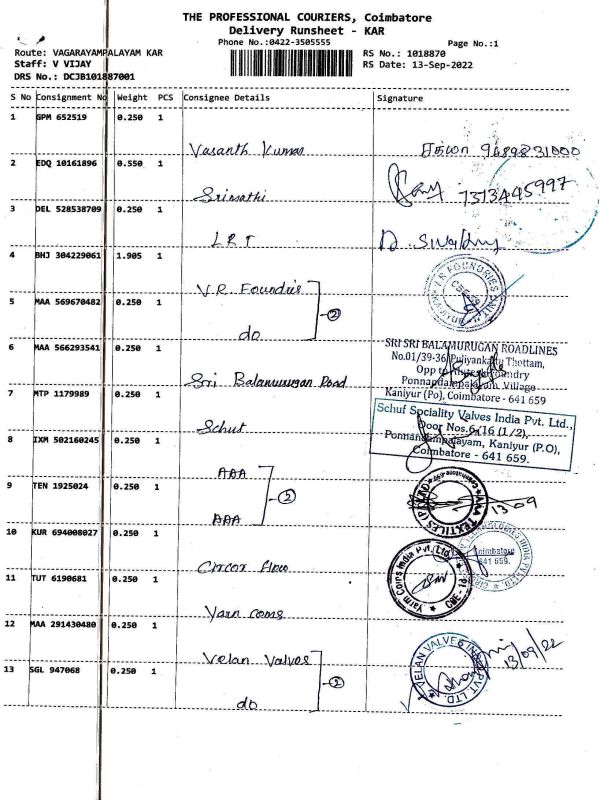 THE PROFESSIONAL COURIERS, Coimbatore
Delivery Runsheet - KAR
Phone No.:0422-3505555
Page No.:1
Route: VAGARAYAMPALAYAM KAR
RS No.: 1018870
Staff: V VIJAY
RS Date: 13-Sep-2022
DRS No.: DCJB101887001
S No Consignment No Weight PCS Consignee Details Signature
1 GPM 652519 0.250 1
Vasanth Kumar 9489831000
2 EDQ 10161896 0.550 1
Srimathi 7373445997
3 DEL 528538709 0.250 1
LRT
4 BHJ 304229061 1.905 1
V.R Foundries
2
5 MAA 569670482 0.250 1
do
6 MAA 566293541 0.250 1
Sri Balamurugan Road
SRI SRI BALAMURUGAN ROADLINES
No.01/39-36, Puliyankattu Thottam,
Opp to Foundry
Ponnandampalayam Village
Kaniyur (Po), Coimbatore - 641 659
7 MTP 1179989 0.250 1
Schuf
Schuf Speciality Valves India Pvt. Ltd.,
Door Nos.6/16 (1/2),
Ponnandampalayam, Kaniyur (P.O),
Coimbatore - 641 659.
8 IXM 502160245 0.250 1
AAA
2
9 TEN 1925024 0.250 1
AAA
AAA TEXTILES (P) LTD
13-09
10 KUR 694008027 0.250 1
Circor flow
Coimbatore
641 659.
11 TUT 6190681 0.250 1
Yarn coms
Yarm Coirs India Pvt. Ltd
12 MAA 291430480 0.250 1
Velan Valves
2
VELAN VALVES INDIA PVT. LTD.
13/09/22
13 SGL 947068 0.250 1
do